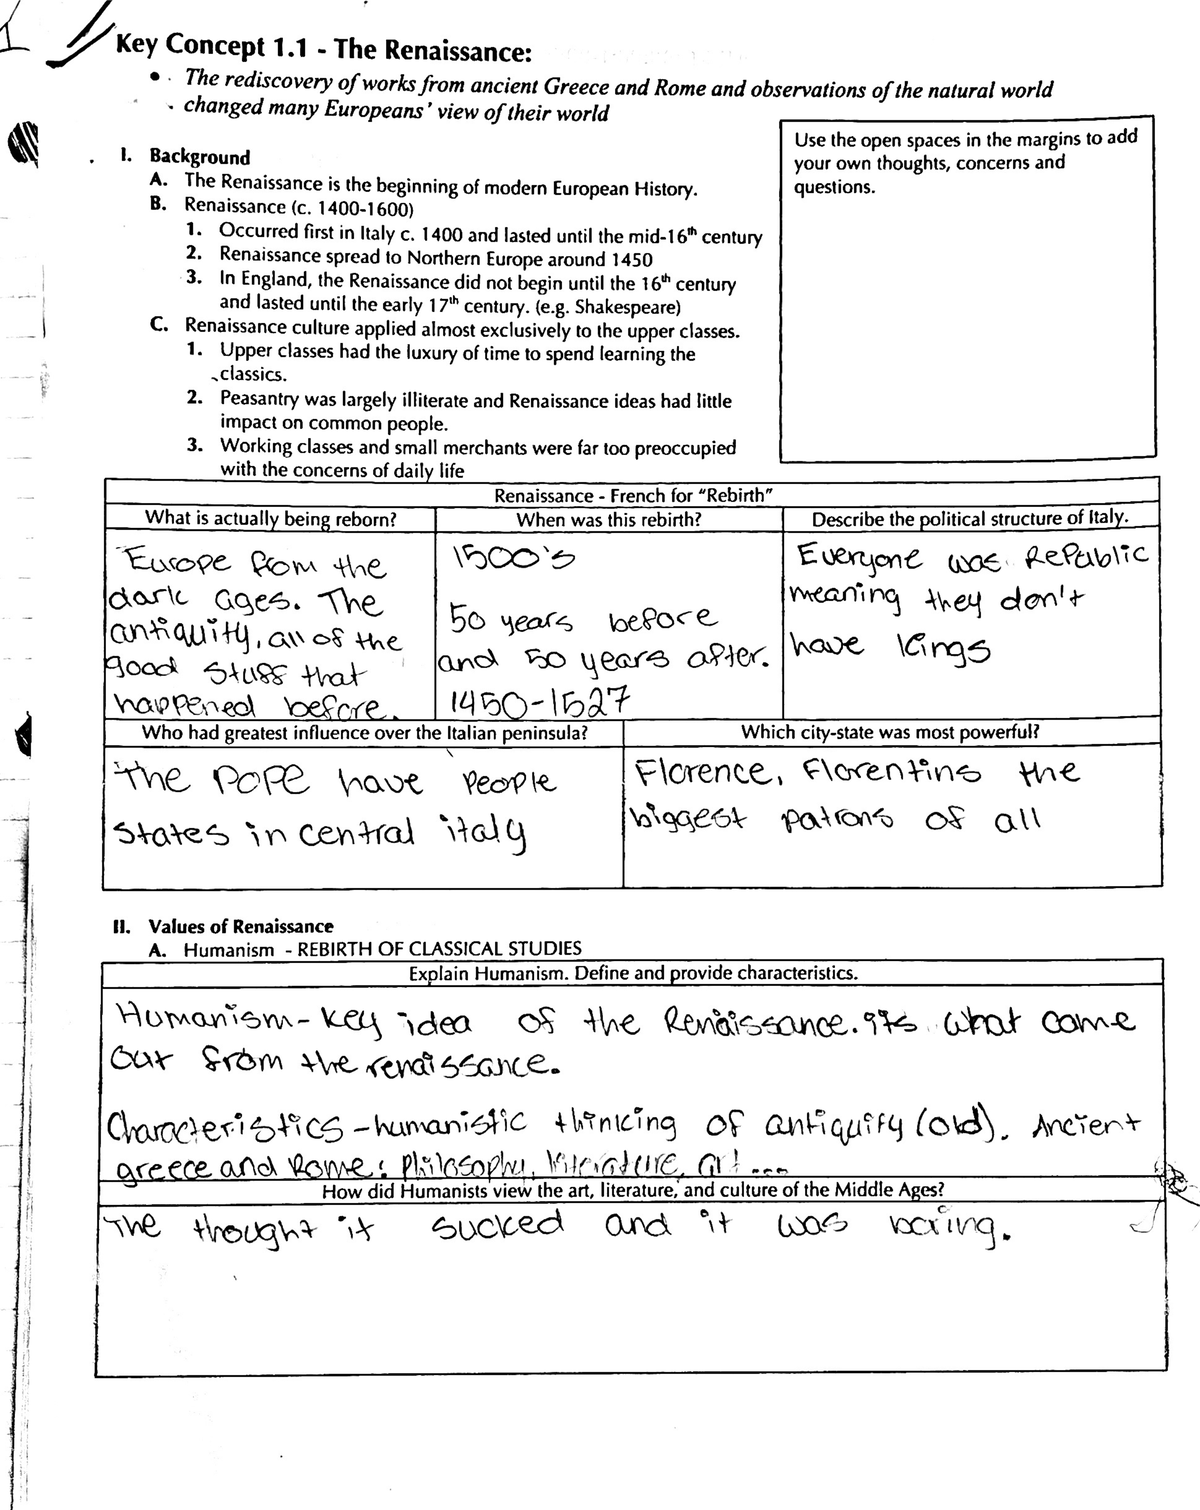 Key Concept 1.1 - The Renaissance:
• The rediscovery of works from ancient Greece and Rome and observations of the natural world
changed many Europeans' view of their world
Use the open spaces in the margins to add
your own thoughts, concerns and
questions.
I. Background
A. The Renaissance is the beginning of modern European History.
B. Renaissance (c. 1400-1600)
1. Occurred first in Italy c. 1400 and lasted until the mid-16th century
2. Renaissance spread to Northern Europe around 1450
3. In England, the Renaissance did not begin until the 16th century
and lasted until the early 17th century. (e.g. Shakespeare)
C. Renaissance culture applied almost exclusively to the upper classes.
1. Upper classes had the luxury of time to spend learning the
classics.
2. Peasantry was largely illiterate and Renaissance ideas had little
impact on common people.
3. Working classes and small merchants were far too preoccupied
with the concerns of daily life
Renaissance - French for "Rebirth"
What is actually being reborn?
Europe from the
dark ages. The
antiquity, all of the
good stuff that
happened before.
When was this rebirth?
1500's
50 years before
and 50 years after.
1450-1527
Describe the political structure of Italy.
Everyone was Republic
meaning they don't
have kings
Who had greatest influence over the Italian peninsula?
The POPE have people
states in central italy
Which city-state was most powerful?
Florence, Florentins the
biggest patrons of all
II. Values of Renaissance
A. Humanism - REBIRTH OF CLASSICAL STUDIES
Explain Humanism. Define and provide characteristics.
Humanism- key idea of the Renaissance. its what come
out from the renaissance.
Characteristics - humanistic thinking of antiquity (old). Ancient
greece and Rome: Philosophy, literature, art ...
How did Humanists view the art, literature, and culture of the Middle Ages?
The thought it sucked and it was boring.